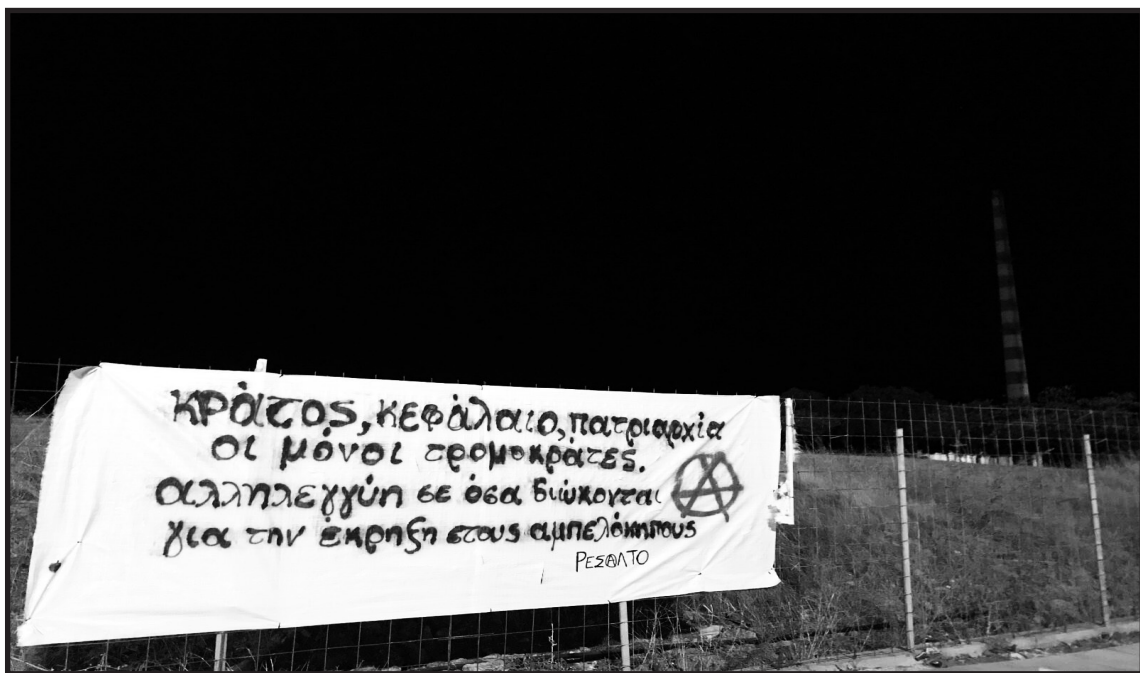 ΚΡάτος, κεφάλαιο, πατριαρχία
οι μόνοι τρομοκράτες.
αλληλεγγύη σε όσα διώκονται
για την έκρηξη στους αμπελόκηπους
ΡΕΣΑΛΤΟ